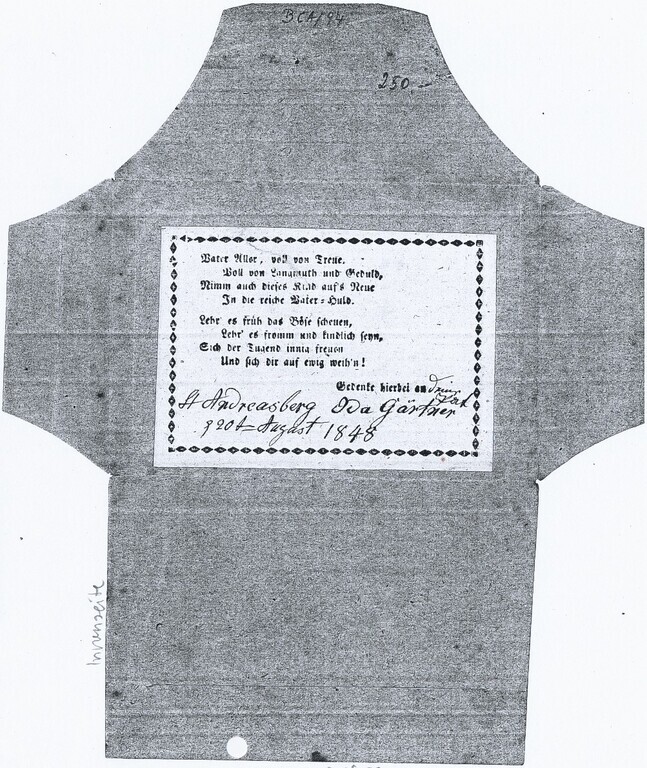 BCA/94
250.—
Vater Aller, voll von Treue.
Voll von Langmuth und Geduld,
Nimm auch dieses Kind auf's Neue
In die reiche Vater-Huld.
Lehr' es früh das Böse scheuen,
Lehr' es fromm und kindlich seyn,
Sich der Tugend innig freuen
Und sich dir auf ewig weih'n!
Gedenke hierbei an
St Andreasberg Oda Gärtner
20t August 1848
Innenseite